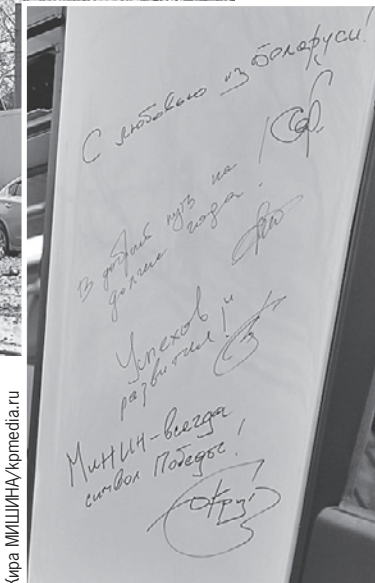 С любовью из Беларуси!
В добрый путь на
долгие года!
Успехов и
развития!
Минин-всегда
символ Победы!
Кира МИШИНА/kpmedia.ru